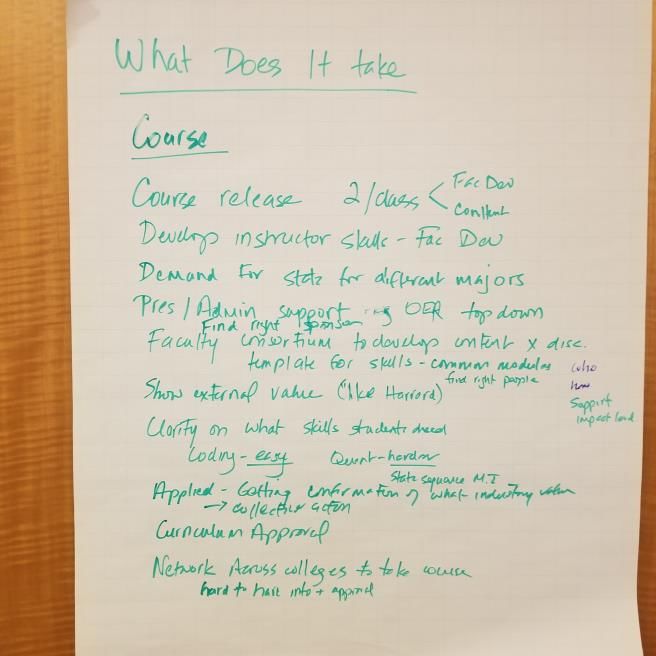 What Does It take
Course
Course release 2/class < Fac Dev
Content
Develop instructor skills - Fac Dev
Demand for stats for different majors
Pres / Admin support OER top down
Find right sponsor
Faculty Consortium to develop content x disc.
template for skills - common modules
find right people
who
how
Support
impact
Show external value ("like Harvard)
Clarity on what skills students need
Coding - easy Quant - harder
State square M.I
Applied - Getting confirmation of what industry value
→ collective action
Curriculum Approval
Network Across colleges to take course
hard to